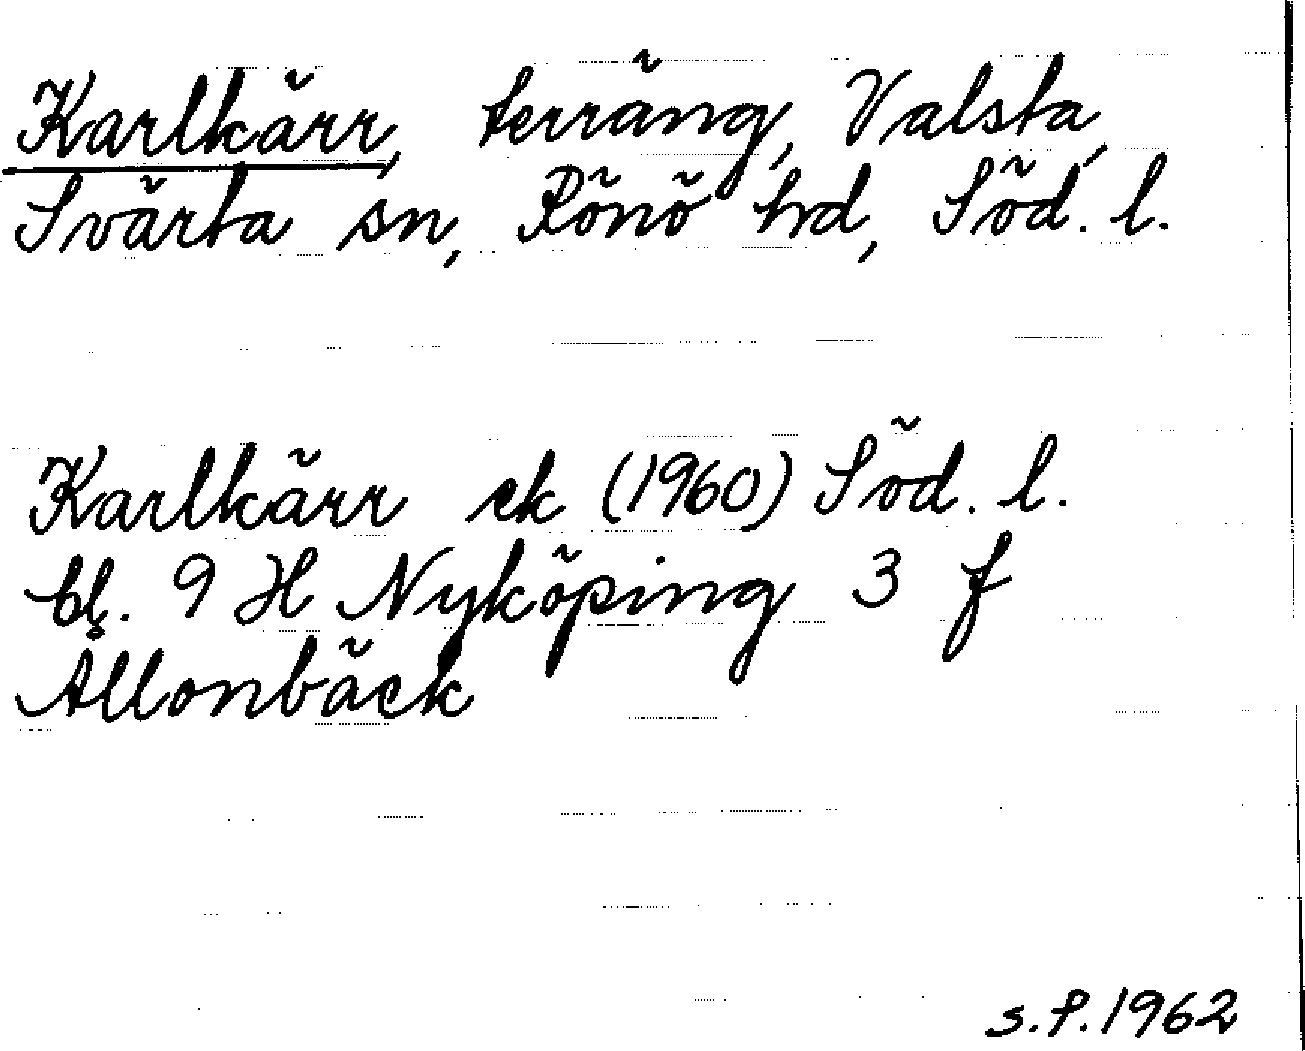 Karlkärr, terräng, Valsta,
Svärta sn, Rönö hd, Söd. l.
Karlkärr ek (1960) Söd. l.
bl. 9 H Nyköping 3 f
Ållonbäck
s.P.1962